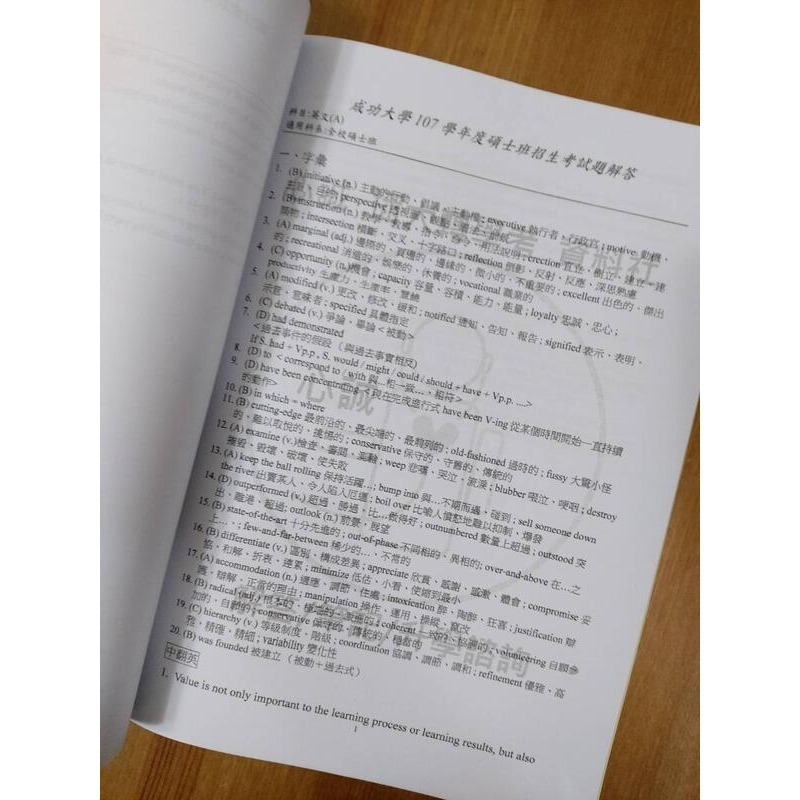 成功大學 107 學年度碩士班招生考試題解答
科目:英文(A)
適用科系:全校碩士班
一、字彙
1. (B) initiative (n.) 主動的行動、倡議、主動權 ; executive 執行者、行政官 ; motive 動機、
perspective
2. (B) instruction (n.) 教學、教導、指令
intersection 橫斷、交叉、十字路口 ; reflection 倒影、反射、反應、深思熟慮
3. (A) marginal (adj.) 邊際的、頁邊的、邊緣的、微小的、不重要的 ; excellent 出色的、傑出
的 ; recreational 消遣的、娛樂的、休養的 ; vocational 職業的
4. (C) opportunity (n.)機會 ; capacity 容量、容積、能力、能量 ; loyalty 忠誠、忠心 ;
productivity 生產力、生產率、豐饒
5. (A) modified (v.) 更改、修改、緩和 ; notified 通知、告知、報告 ; signified 表示、表明、
示意、意味著 ; specified 具體指定
6. (C) debated (v.) 爭論、辯論<被動>
7. (D) had demonstrated
<過去事件的假設（與過去事實相反）
If S. had + Vp.p., S. would / might / could / should + have + Vp.p. ....>
8. (D) to < correspond to / with 與...和一致...、相符>
9. (D) have been concentrating <現在完成進行式 have been V-ing 從某個時間開始一直持續
的動作>
10. (B) in which = where
11. (B) cutting-edge 最前沿的、最尖端的、最鋒利的 ; old-fashioned 過時的 ; fussy 大驚小怪
的、難以取悅的、挑惕的 ; conservative 保守的、守舊的、傳統的
12. (A) examine (v.)檢查、審問、 ; weep 悲嘆、哭泣、流淚 ; blubber 啜泣、哽咽 ; destroy
摧毀、毀壞、破壞、使失敗
13. (A) keep the ball rolling 保持活躍... ; bump into 與...不期而遇、碰到 ; sell someone down
the river 出賣某人、令人陷入厄運 ; boil over 比喻人憤怒地難以抑制、爆發
14. (D) outperformed (v.) 超過、勝過、比...做得好 ; outnumbered 數量上超過 ; outstood 突
出、離港、超過; outlook (n.) 前景、展望
15. (B) state-of-the-art 十分先進的 ; out-of-phase 不同相的、異相的; over-and-above 在...之
上... ; few-and-far-between 稀少的...、不常的
16. (B) differentiate (v.) 區別、構成差異 ; appreciate 欣賞、感謝、感激、體會 ; compromise 妥
協、和解、折衷、連累 ; minimize 低估、小看、使縮到最小
17. (A) accommodation (n.) 適應、調節、住處 ; intoxication 醉、陶醉、狂喜 ; justification 辯
護、辯解、正當的理由 ; manipulation 操作、運用、操縱、竄改
18. (B) radical (adj.) ; coherent ; volunteering 自願參
加的、自願的 ; conservative 保守的、傳統的、穩當的
19. (C) hierarchy (v.) 等級制度、階級 ; coordination 協調、調節、調和 ; refinement 優雅、高
雅、精確、精細 ; variability 變化性
20. (B) was founded 被建立（被動＋過去式）
中翻英
1. Value is not only important to the learning process or learning results, but also
1